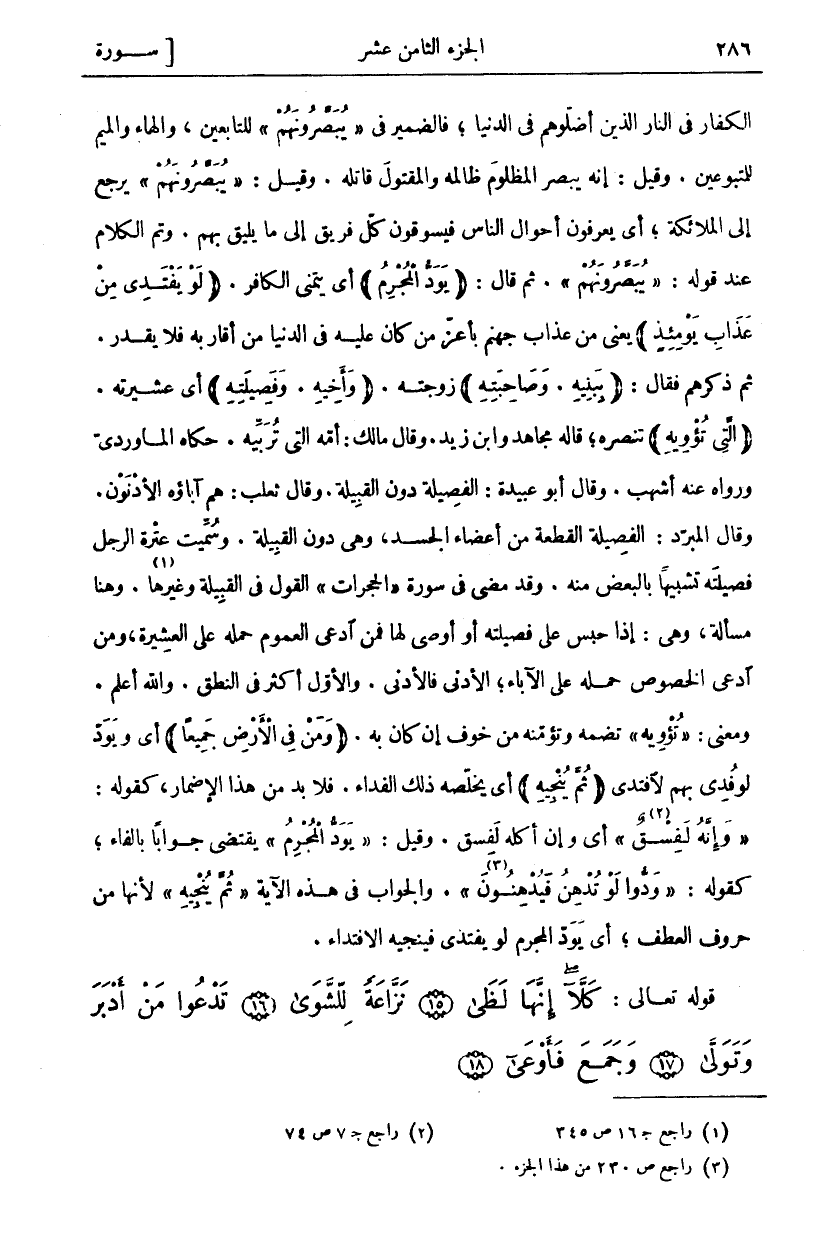 ٢٨٦ الجزء الثامن عشر [ ســـورة
الكفار فى النار الذين أضلّوهم فى الدنيا ؛ فالضمير فى « يُبَصَّرُونَهُمْ » للتابعين ، والهاء والميم
للتبوعين . وقيل : إنه يبصر المظلومَ ظالمه والمقتولَ قاتله . وقيـل : « يُبَصَّرُونَهُمْ » يرجع
إلى الملائكة ؛ أى يعرفون أحوال الناس فيسوقون كلّ فريق إلى ما يليق بهم . وتم الكلام
عند قوله : « يُبَصَّرُونَهُمْ » . ثم قال : ﴿ يَوَدُّ الْمُجْرِمُ ﴾ أى يتمنى الكافر . ﴿ لَوْ يَفْتَـدِى مِنْ
عَذَابِ يَوْمِئِذٍ ﴾ يعنى من عذاب جهنم بأعزّ من كان عليـه فى الدنيا من أقاربه فلا يقـدر .
ثم ذكرهم فقال : ﴿ بِبَنِيهِ . وَصَاحِبَتِهِ ﴾ زوجتـه . ﴿ وَأَخِيهِ . وَفَصِيلَتِهِ ﴾ أى عشـيرته .
﴿ الَّتِى تُؤْوِيهِ ﴾ تنصره؛ قاله مجاهد وابن زيد. وقال مالك: أمّه التى تُرَبِّيه . حكاه المـاوردىّ
ورواه عنه أشهب . وقال أبو عبيدة : الفَصِيلة دون القَبِيلة. وقال ثعلب: هم آباؤه الأدْنَوْن.
وقال المبرّد : الفَصِيلة القطعة من أعضاء الجسـد، وهى دون القبيلة . وسُمِّيت عِتْرة الرجل
فصيلتَه تشبيهًا بالبعض منه . وقد مضى فى سورة «الحجرات» القول فى القبيلة وغيرها (١) . وهنا
مسألة، وهى : إذا حبس على فصيلته أو أوصى لها فمن آدعى العموم حمله على العشيرة، ومن
آدعى الخصوص حمـله على الآباء؛ الأدنى فالأدنى . والأوّل أكثر فى النطق . والله أعلم .
ومعنى: « تُؤْوِيه» تضمه وتؤمّنه من خوف إن كان به . ﴿ وَمَنْ فِى الْأَرْضِ جَمِيعًا ﴾ أى و يَوَدّ
لو فُدِى بهم لآفتدى ﴿ ثُمَّ يُنْجِيهِ ﴾ أى يخلّصه ذلك الفداء . فلا بد من هذا الإضمار، كقوله :
« وَإِنَّهُ لَفِسْـقٌ (٢) » أى وإن أكله لَفِسق . وقيل : « يَوَدُّ الْمُجْرِمُ » يقتضى جـوابًا بالفاء ؛
كقوله : « وَدُّوا لَوْ تُدْهِنُ فَيُدْهِنُـونَ (٣) » . والجواب فى هـذه الآية « ثُمَّ يُنْجِيهِ » لأنها من
حروف العطف ؛ أى يَوَدّ المجرم لو يفتدى فينجيه الافتداء .
قوله تعـالى : كَلَّآ إِنَّهَا لَظَىٰ ١٥ نَزَّاعَةً لِّلشَّوَىٰ ١٦ تَدْعُوا مَنْ أَدْبَرَ
وَتَوَلَّىٰ ١٧ وَجَمَعَ فَأَوْعَىٰٓ ١٨
(١) راجع جـ ١٦ ص ٣٤٥ (٢) راجع جـ ٧ ص ٧٤
(٣) راجع ص ٢٣٠ من هذا الجزء .